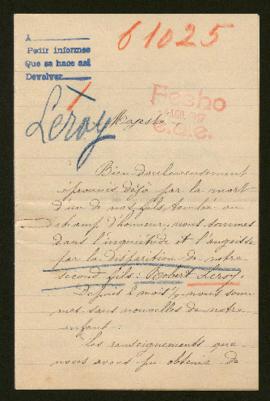 A
Pedir informes
Que se hace así
Devolver
61025
Fecho
Leroy
Majesté
Bien douloureusement
éprouvés déjà par la mort
d'un de nos fils, tombé au
champ d'honneur, nous sommes
dans l'inquiétude et l'angoisse
par la disparition de notre
second fils: Robert Leroy.
Depuis 2 mois ½ nous som
mes sans nouvelles de notre
enfant:
Les renseignements que
nous avons pu obtenir de